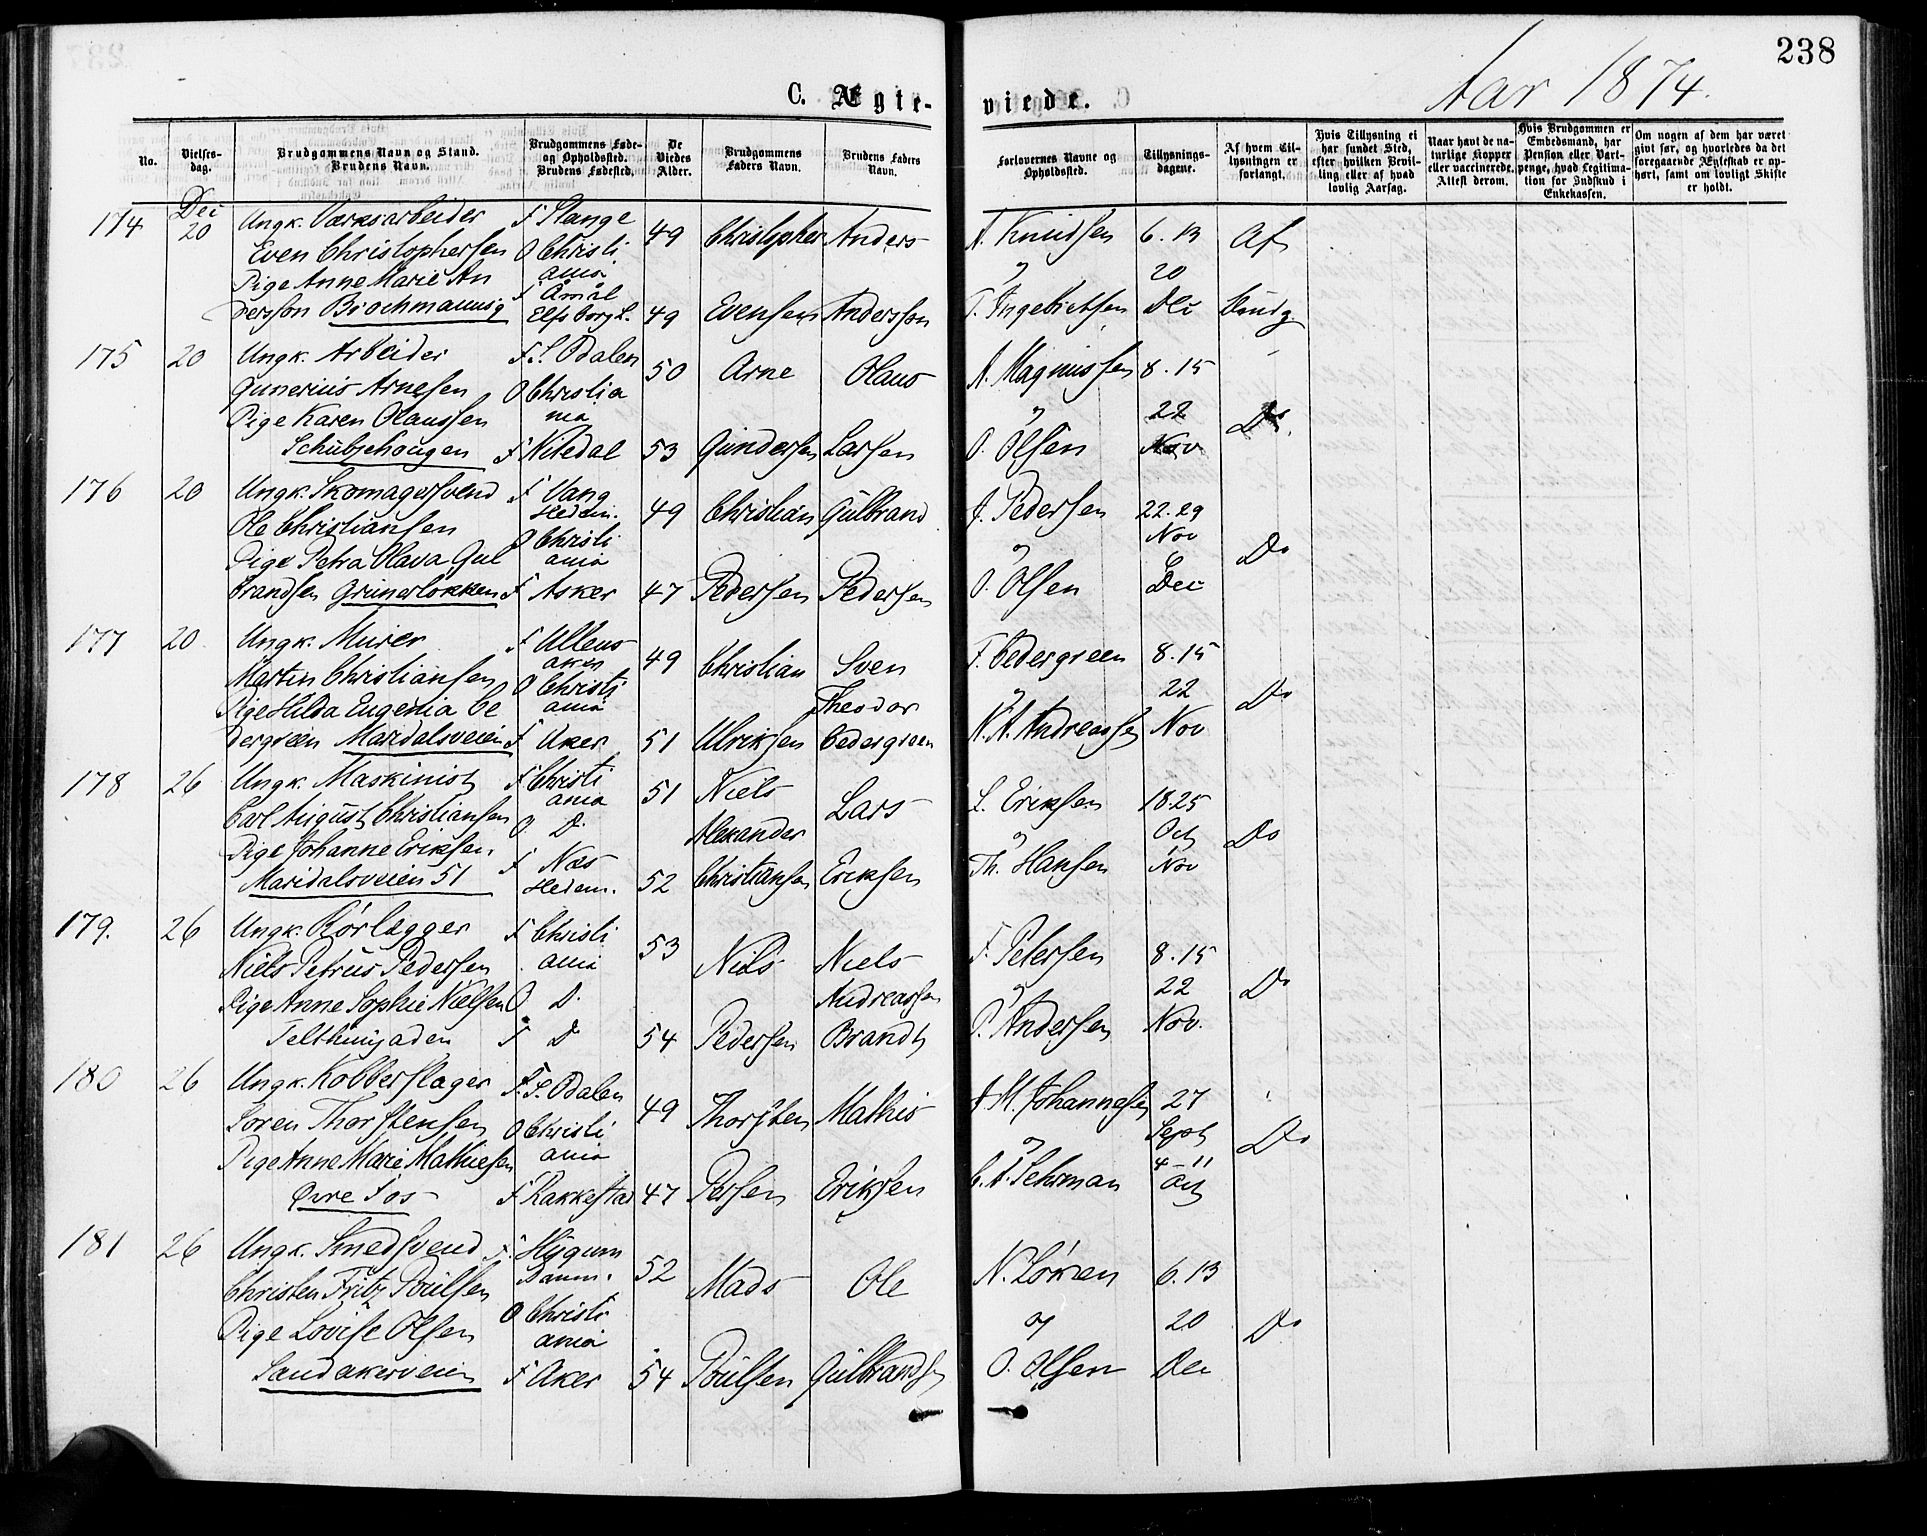 238
C. Ægte-
viede.
Aar 1874.
No.
Vielses-
dag.
Brudgommens Navn og Stand.
Brudens Navn.
Brudgommens Føde-
og Opholdssted.
Brudens Fødested.
De
Viedes
Alder.
Brudgommens
Faders Navn.
Brudens Faders
Navn.
Forlovernes Navne og
Opholdssted.
Tillysnings-
dagene.
Af hvem Til-
lysningen er
forlangt.
Hvis Tillysning ei
har fundet Sted,
efter hvilken Bevil-
ling eller af hvad
lovlig Aarsag.
Naar havt de na-
turlige Kopper
eller vaccinerede.
Attest derom.
Hvis Brudgommen er
Embedsmand, har
Pension eller Vart-
penge, hvad Legitima-
tion for Indskud i
Enkekassen.
Om nogen af dem har været
givt før, og hvorledes da det
foregaaende Ægteskab er op-
hørt, samt om lovligt Skifte
er holdt.
174 Dec 20
Ungk. Værksarbeider
Even Christophersen
Pige Anne Marie An
dersson Brochmannsg
F Stange
O Christi
ania
F Åmål
Elfsborg L.
49
49
Christopher
Evensen
Anders
Andersson
A. Knudsen
og
T. Ingebretsen
6. 13
20
Dec
Af
Brudg.
175 20
Ungk. Arbeider
Gunerius Arnesen
Pige Karen Olaussen
Schübjehougen
F. S. Odalen
O Christia
nia
F Nitedal
50
53
Arne
Gundersen
Olaus
Larsen
A. Magnussen
og
O. Olsen
8. 15
22
Nov
Do.
176 20
Ungk. Skomagersvend
Ole Christiansen
Pige Petra Olava Gul
brandsen Grünerløkken
F Vang
Hedem.
O Christi
ania
F Asker
49
47
Christian
Pedersen
Gülbrand
Pedersen
J. Pedersen
og
O. Olsen
22. 29
Nov
6
Dec
Do
177 20.
Ungk. Murer
Martin Christiansen
Pige Hilda Eugenia Ce
dergreen Maridalsveien
F Ullens
aker
O Christi
ania
F Aker
49
51
Christian
Ulriksen
Sven
Theodor
Cedergreen
F. Cedergreen
og
N. A. Andreassen
8. 15
22
Nov
Do
178 26
Ungk. Maskinist
Carl August Christiansen
Pige Johanne Eriksen
Maridalsveien 51
F Christi
ania
O D.
F Næs
Hedem.
51
52
Niels
Alexander
Christiansen
Lars
Eriksen
L. Eriksen
og
Th. Hansen
18. 25
Oct
1
Nov
Do
179. 26
Ungk. Rørlægger
Niels Petrus Pedersen
Pige Anne Sophie Nielsen
Telthusgaden
F Christi
ania
O D.
F D
53
54
Niels
Pedersen
Niels
Andreassen
Brandt
F. Petersen
og
P. Andersen
8. 15
22
Nov.
Do
180 26
Ungk. Kobberslager
Soren Thorstensen
Pige Anne Marie Mathiesen
Øvre Fos
F. S. Odalen
O Christi
ania
F Rakkestad
49
47
Thorsten
Persen
Mathis
Eriksen
A. M. Johannesen
og
C. A. Fehrman
27
Sept
4-11
Oct
Do
181 26
Ungk. Smedsvend
Christen Fritz Poülsen
Pige Lovise Olsen
Sandakerveien
F. Hygum
Danm.
O Christi
ania
F Aker
52
54
Mads
Poülsen
Ole
Gülbrandsen
N. Løken
og
O. Olsen
6. 13
20
Dec
Do